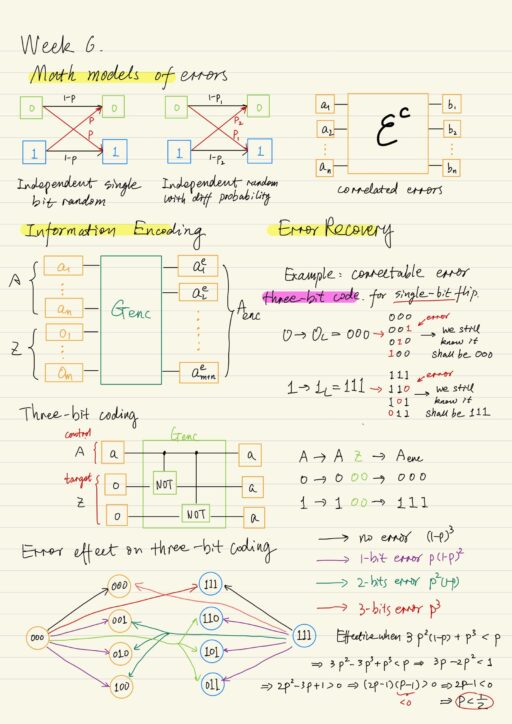 Week 6.
Math models of errors
0 1-p 0
p
p
1 1-p 1
Independent single
bit random
0 1-p₁ 0
P₂
P₁
1 1-p₂ 1
Independent random
with diff probability
a₁ b₁
a₂ ℰᶜ b₂
⋮ ⋮
aₙ bₙ
correlated errors
Information Encoding
A { a₁
⋮
aₙ
Z { 0₁
⋮
0ₘ
Genc
a₁ᵉ
a₂ᵉ
⋮
aᵉₘ₊ₙ
} Aenc
Error Recovery
Example: correctable error
three-bit code for single-bit flip.
0 → 0L = 000 →
000
001 error
010
100
→ we still
know it
shall be 000
1 → 1L = 111 →
111
110 error
101
011
→ we still
know it
shall be 111
Three-bit coding
control
A { a a
target
Z { 0 a
0 a
Genc
NOT
NOT
A → A Z → Aenc
0 → 0 00 → 000
1 → 1 00 → 111
Error effect on three-bit coding
000
000
001
010
100
111
110
101
011
111
→ no error (1-p)³
→ 1-bit error p(1-p)²
→ 2-bits error p²(1-p)
→ 3-bits error p³
Effective when 3p²(1-p) + p³ < p
⇒ 3p² - 3p³ + p³ < p ⇒ 3p - 2p² < 1
⇒ 2p² - 3p + 1 > 0 ⇒ (2p-1)(p-1) > 0 ⇒ 2p-1 < 0
<0 ⇒ p < 1/2